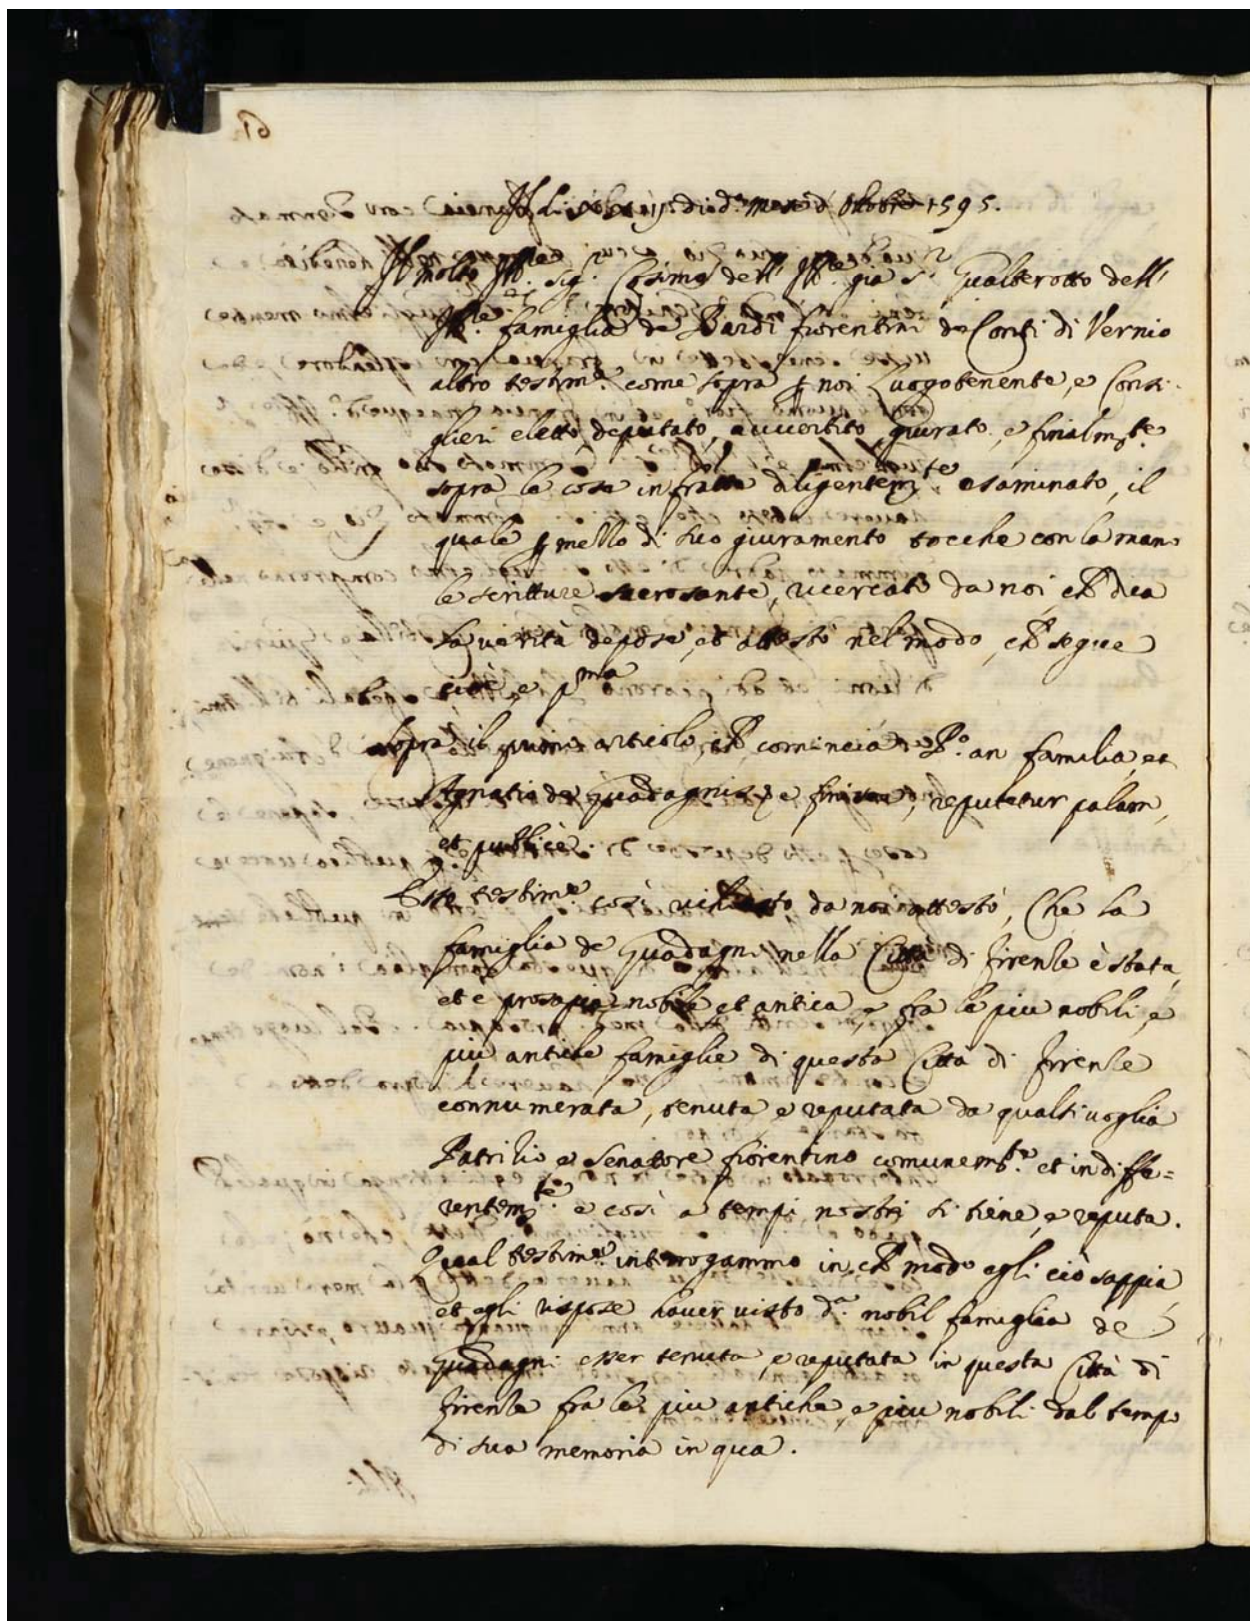 di d.º mese d' Ottobre 1595.
Il molto Ill.re sig. Cosimo dell' Ill.re già s.r Gualterotto dell'
Ill.re famiglia de Bardi fiorentini de Conti di Vernio
altro testim.º come sopra p noi Luogotenente, e Consi-
glieri eletto, deputato, avvertito, giurato, e finalm.te
sopra le cose infratte diligentem.te esaminato, il
quale p mezzo di suo giuramento tocche con la mano
le scritture sacrosante, ricercato da noi, ch dica
la verità depose, et attestò nel modo, ch segue
cioè, e p.ma
Sopra il primo articolo, ch comincia an familia, et
Agnatio de Guadagnis, e finisce, reputetur palam,
et publicè.
testim.º così richiesto da noi attestò, Che la
famiglia de Guadagni nella Città di firenze è stata,
et e prosapia nobile et antica, e fra le piu nobili, e
piu antiche famiglie di questa Città di firenze
connumerata, tenuta e reputata da qualsivoglia
Patrizio e Senatore fiorentino comunem.te et indiffe=
rentem.te e così a tempi nostri si tiene, e reputa.
Qual testim.º interrogammo in ch modo egli ciò sappia
et egli rispose haver visto d.a nobil famiglia de
Guadagni esser tenuta, e reputata in questa Città di
firenze fra le piu antiche e piu nobili dal tempo
di sua memoria in qua.